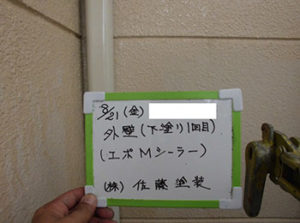 8/21(金)
外壁(下塗り1回目)
(エポMシーラー)
(株)佐藤塗装